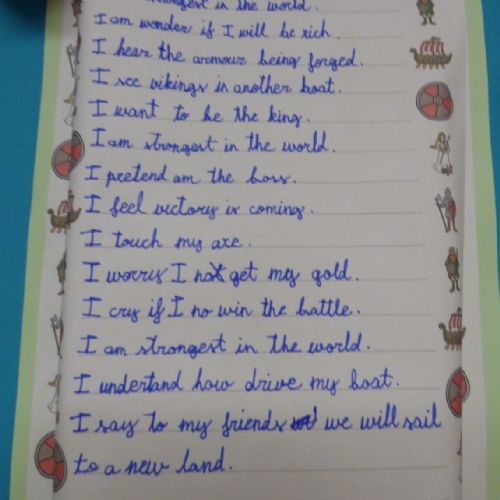 strongest in the world.
I am wonder if I will be rich.
I hear the armour being forged.
I see vikings in another boat.
I want to be the king.
I am strongest in the world.
I pretend am the boss.
I feel victory is coming.
I touch my axe.
I worry I not get my gold.
I cry if I no win the battle.
I am strongest in the world.
I understand how drive my boat.
I say to my friends we will sail
to a new land.